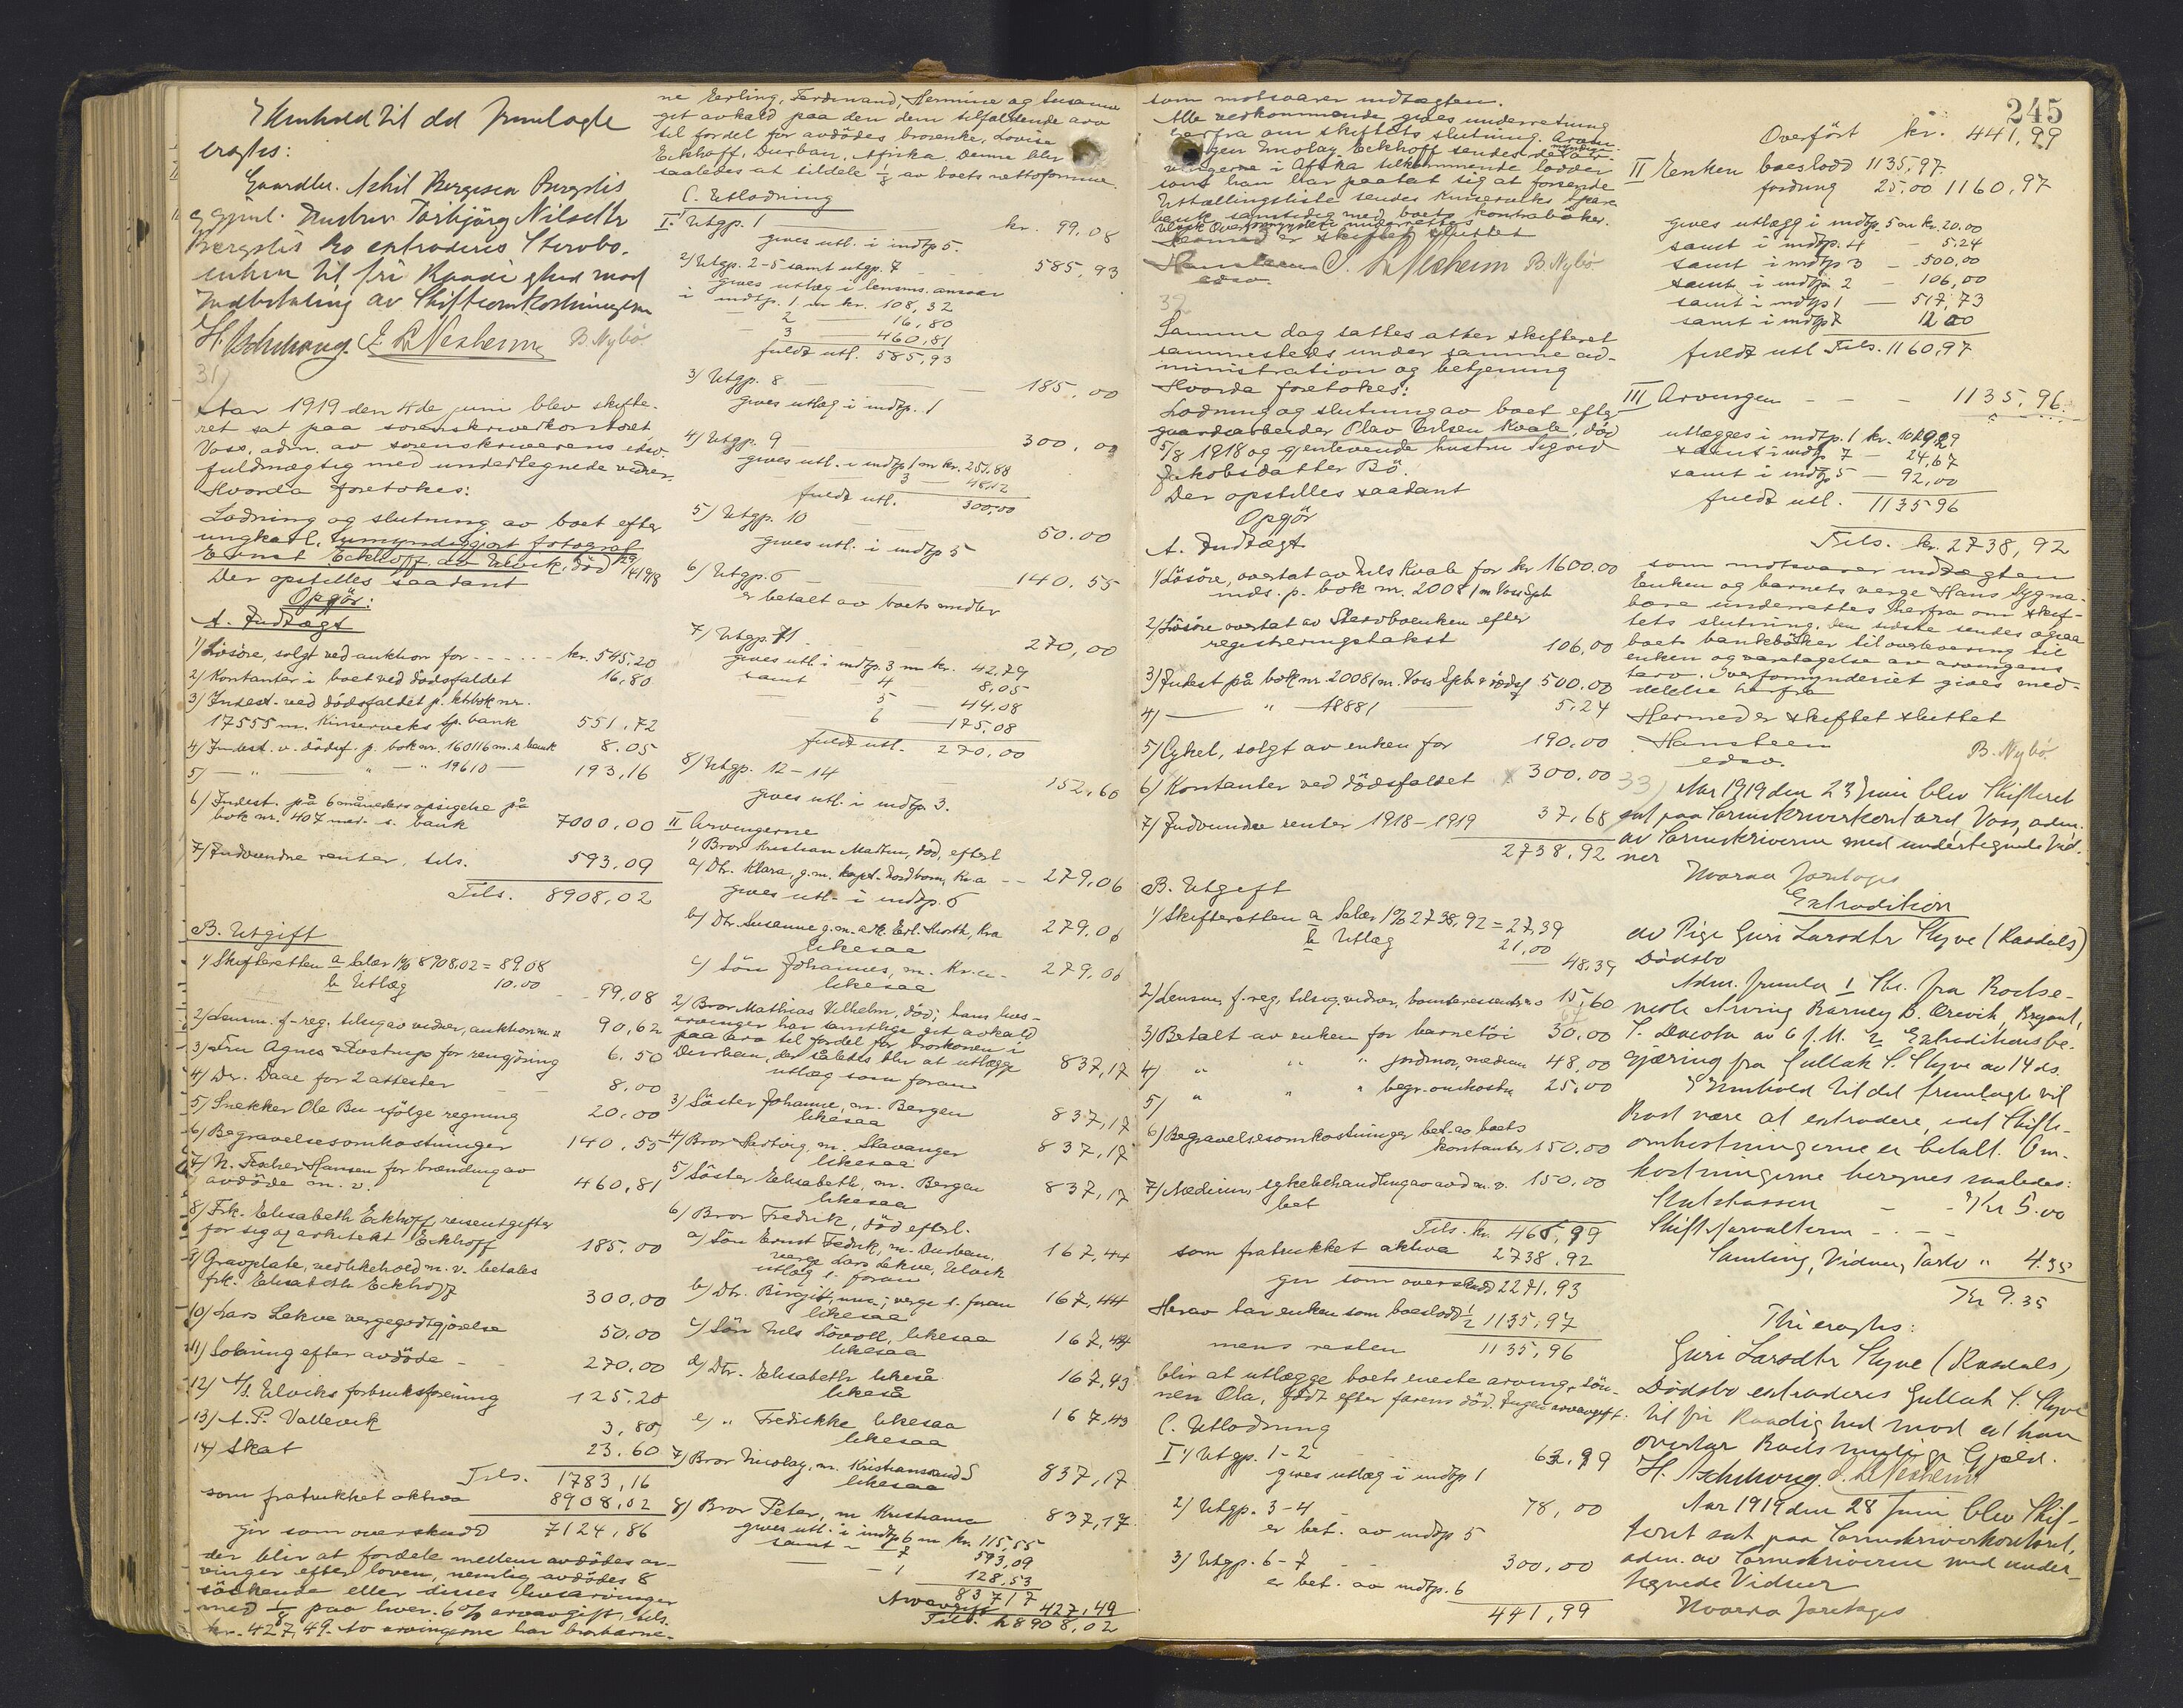 I Henhold til det fremlagte
eragtes:
Gaardbr. Askil Bergesen Bergslis
og gjenl. Hustru Torbjörg Nilsdtr
Bergslis bo extraderes Stervbo-
enken til fri Raadighed mod
Indbetaling av Skifteomkostningerne
H. Aschehoug. L. L. Nesheim B. Nybö
31)
Aar 1919 den 4de juni blev skifte-
ret sat paa sorenskriverkontoret
Voss, adm. av sorenskriverens edsv.
fuldmægtig med undertegnede vidner.
Hvorda foretokes:
Lodning og slutning av boet efter
ungkarl, umyndiggjort fotograf
Ernst Eckhoff av Ulvik, död 29/4 1918
Der opstilles saadant
Opgjör:
A. Indtægt
1) Lösöre, solgt ved auktion for - - - - - kr. 545.20
2) Kontanter i boet ved dödsfaldet 16,80
3) Indest. ved dödsfaldet p. ktrbok nr.
17555 m. Kinserviks sp. bank 551,72
4) Indest. v. dödsf. p. bok nr. 160116 m. s. bank 8.05
5) — " — " — " 19610 — 193,16
6) Indest. på 6 måneders opsigelse på
bok nr. 407 med s. bank 7000,00
7) Indvundne renter, tils. 593,09
Tils. 8908,02
B. Utgift
1) Skifteretten a Salær 1% 8908.02 = 89.08
b Utlæg 10.00 99,08
2) Lensm. f. reg. tilsyn av vidner, auktion m. v. 90,62
3) Fru Agnes Aostrup for rengjöring 6.50
4) Dr. Daae for 2 attester 8.00
5) Snekker Ole Bu ifölge regning 20.00
6) Begravelsesomkostninger 140.55
7) N. Fischer Hansen for brænding av
avdöde m. v. 460,81
8) Frk. Elisabeth Eckhoff reiseutgifter
for sig og arkitekt Eckhoff 185.00
9) Gravplate, vedlikehold m. v. betales
frk. Elisabeth Eckhoff 300,00
10) Lars Lekve vergegodtgjörelse 50.00
11) Lodning efter avdöde - 270.00
12) A/L Ulviks forbruksforening 125.20
13) A. P. Vallevik 3,80
14) Skat 23.60
Tils. 1783,16
som fratrukket aktiva 8908,02
gir som overskudd 7124,86
der blir at fordele mellem avdödes ar-
vinger efter loven, nemlig avdödes 8
söskende eller disses livsarvinger
med 1/8 paa hver. 6% arveavgift, tils.
kr. 427,49. Av arvingerne har brorbarne-
ne Erling, Ferdinand, Hermine og Susanne
git avkald paa den dem tilfaldende arv
til fordel for avdödes brorenke, Lovise
Eckhoff, Durban, Afrika. Denne blir
saaledes at tildele 1/8 av boets nettoformue.
C. Utlodning
I. 1) Utgp. 1 kr. 99,08
gives utl. i indtp 5.
2) Utgp. 2-5 samt utgp. 7 585,93
gives utlæg i lensms. ansvar
i indtp. 1 m kr. 108,32
— 2 — 16,80
— 3 — 460,81
fuldt utl. 585,93
3) Utgp. 8 — 185,00
gives utlæg i indtp. 1
4) Utgp. 9 300,00
gives utl. i indtp 1 m kr. 251.88
3 — 48.12
fuldt utl. 300,00
5) Utgp. 10 50.00
gives utl. i indtp 5
6) Utgp. 6 140.55
er betalt av boets midler
7) Utgp. 11 270,00
gives utl. i indtp. 3 m kr. 42,79
samt — 4 8,05
5 — 44.08
6 — 175,08
fuldt utl. 270,00
8) Utgp. 12-14 152,60
gives utl. i indtp 3.
II Arvingerne
1) Bror Kristian Madtin, död, efterl
a) Dtr. Klara, g. m. kapt. Nordbom, Kr.a - - 279,06
gives utl. i indtp. 6
b) Dtr. Susanne g. m. ark. Erl. North, Kra 279.06
likesaa
c) Sön Johannes, m. Kr.a. - 279.06
likesaa
2) Bror Mathias Vilhelm, död; hans livs-
arvinger har samtlige git avkald
paa arv til fordel for brorkonen i
Durban, der således blir at utlægge 837,17
utlæg som foran
3) Söster Johanne, m. Bergen 837,17
likesaa
4) Bror Hartvig, m. Stavanger 837,17
likesaa
5) Söster Elisabeth, m. Bergen 837,17
likesaa
6) Bror Fredrik, död efterl.
a) Sön Ernst Fedrik, m. Durban. 167,44
verge Lars Lekve, Ulvik
utlæg s. foran
b) Dtr. Birgit, m.; verge s. foran 167,44
likesaa
c) Sön Nils Lövoll, likesaa 167,44
likesaa
d) Dtr. Elisabeth likeså 167,43
likeså
e) " Fredikke likesaa 167,43
likesaa
7) Bror Nicolay, m. Kristianssand S 837,17
likesaa
8) Bror Peter, m Kristiania 837,17
gives utl. i indtp 6 m kr. 115,55
samt — 7 593,09
— 1 128,53
83717
Arveavgift 427,49
Tils. kr 8908,02
245
som motsvarer indtægten.
Alle vedkommende gives underretning
herfra om skiftets slutning. Arvin-
gen Nicolay Eckhoff sendes de myndige
arvingerne i Afrika tilkommende lodder
som han har paatat sig at forsende
Utstællingsliste sendes Kinserviks Spare
bank samtidig med boets kontrabøker.
Ulvik Overformynderi underrettes
Hermed er skiftet sluttet
Hansteen L. L. Nesheim B. Nybö
edsv.
32
Samme dag sattes atter skifteret
sammesteds under samme ad-
ministration og betjening
Hvorda foretokes:
Lodning og slutning av boet efter
gaardsarbeider Olav Nilsen Kvale, död
5/8 1918 og gjenlevende hustru Sigrid
Jakobsdatter Bö.
Der opstilles saadant
Opgjör
A. Indtægt
1) Lösöre, overtat av Nils Kvale for kr 1600.00
inds. p. bok nr. 2008 / m Voss Spb
2) Lösöre overtat av Stervboenken efter
registreringstakst 106,00
3) Indest på bok nr 2008 / m. Voss Spb v dödsf 500.00
4) — " — 18881 — 5.24
5) Cykel, solgt av enken for 190.00
6) Kontanter ved dödsfaldet x 300.00
7) Indvundne renter 1918-1919 37,68
2738,92
B. Utgift
1) Skifteretten a Salær 1% 2738,92 = 27.39
b Utlæg 21.00
48.39
2) Lensm. f. reg, tilsyn, vidner, 15,60
3) Betalt av enken for barnetöi 30.00
4) " " " jordmor, medicin 48,00
5) " " " begr. omkostn 25.00
6) Begravelsesomkostninger bet. av boets
kontanter 150.00
7) Medicin, sykebehandling av avd m. v. 150,00
bet
Tils. kr. 466,99
som fratrukket aktiva 2738,92
gir som overskudd 2271,93
Herav har enken som boeslodd 1/2 1135,97
mens resten 1135,96
blir at utlægge boets eneste arving, sön-
nen Ola, födt efter farens död. Ingen arveavgift.
C. Utlodning
I 1) Utgp. 1-2 63,99
gives utlæg i indtp 1
2) Utgp. 3-4 78,00
er bet. av indtp 5
3) Utgp. 6-7 300,00
er bet. av indtp. 6
441,99
Overført kr. 441,99
II Enken boeslodd 1135,97.
fordring 25.00 1160,97
gives utlægg i indtp. 5 m kr. 20.00
samt i indtp. 4 — 5.24
samt i indtp 3 — 500,00
samt i indtp. 2 — 106,00
samt i indtp 1 — 517,73
samt i indtp 7 12.00
fuldt utl Tils. 1160,97
III Arvingen - - - 1135,96.
utlægges i indtp. 1 kr.
samt i indtp 7 — 24,67
samt i indtp 5 — 92,00
fuldt utl. 113596
Tils. kr. 2738,92
som motsvarer indtægten
Enken og barnets verge Hans Sygna-
bore underrettes herfra om skif-
tets slutning, den sidste sendes ogsaa
boets bankböker til overlevering til
enken og varetagelse av arvingens
tarv. Overformynderiet gives med-
delelse herfra
Hermed er skiftet sluttet
Hansteen B. Nybö
edsv.
33) Aar 1919 den 23 Juni blev Skifteret
sat paa Sorenskriverkontoret, Voss, adm.
av Sorenskriveren med undertegnede Vid-
ner
Hvorda foretoges
Extradition
av Pige Guri Larsdtr Styve (Rasdals)
Dödsbo
Adm. fremla 1 Skr. fra Bortse-
nede Arving Barney B. Orevik, Bryant,
S. Dacota av 6 f. M. 2 Extraditionsbe-
gjæring fra Gullak S. Styve av 14 ds.
I Henhold til det fremlagte vil
Boet være at extradere, idet Skifte-
omkostningerne er betalt. Om-
kostningerne beregnes saaledes:
Statskassen - - Kr 5.00
Skifteforvalteren - - -
Samling, Vidner, Tarv " 4.35
Kr 9.35
Thi eragtes:
Guri Larsdtr Styve (Rasdals)
Dödsbo extraderes Gullak S. Styve
til fri Raadighed mod at han
overtar Boets mulige Gjæld.
H. Aschehoug. L. L. Nesheim
Aar 1919 den 28 Juni blev Skif-
teret sat paa Sorenskriverkontoret,
adm. av Sorenskriveren med under-
tegnede Vidner
Hvorda foretoges